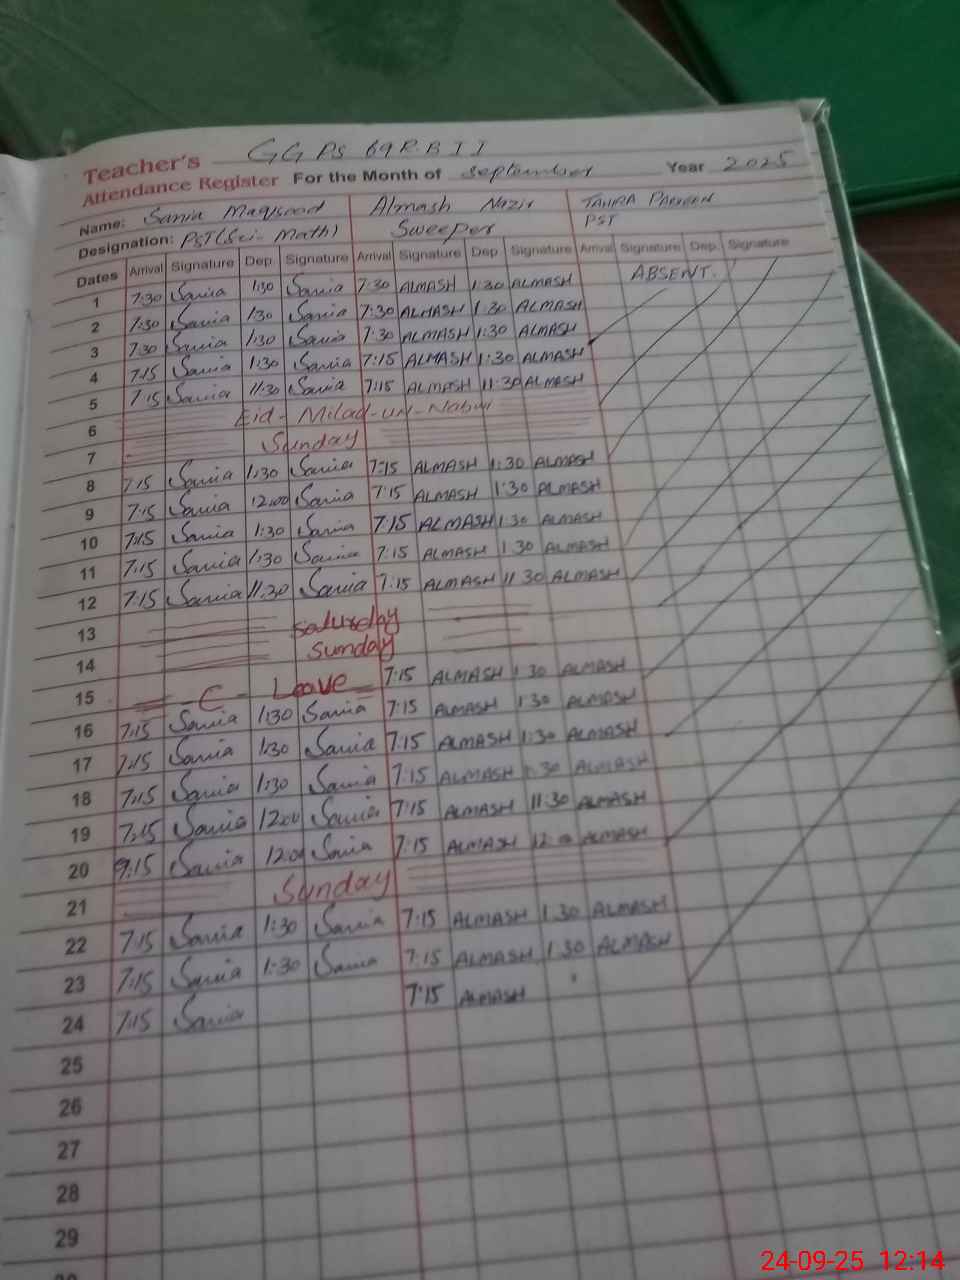 Teacher's GGPS 69 R.B II
Attendance Register For the Month of September Year 2025
Name: Sania Maqsood Almash Nazir TAHIRA PARVEEN
Designation: PST(Sci-Math) Sweeper PST
Dates Arrival Signature Dep. Signature Arrival Signature Dep. Signature Arrival Signature Dep. Signature
1 7:30 Sania 1:30 Sania 7:30 ALMASH 1:30 ALMASH ABSENT.
2 7:30 Sania 1:30 Sania 7:30 ALMASH 1:30 ALMASH
3 7:30 Sania 1:30 Sania 7:30 ALMASH 1:30 ALMASH
4 7:15 Sania 1:30 Sania 7:15 ALMASH 1:30 ALMASH
5 7:15 Sania 11:30 Sania 7:15 ALMASH 11:30 ALMASH
6 Eid-Milad-un-Nabwi
7 Sunday
8 7:15 Sania 1:30 Sania 7:15 ALMASH 1:30 ALMASH
9 7:15 Sania 12:00 Sania 7:15 ALMASH 1:30 ALMASH
10 7:15 Sania 1:30 Sania 7:15 ALMASH 1:30 ALMASH
11 7:15 Sania 1:30 Sania 7:15 ALMASH 1:30 ALMASH
12 7:15 Sania 11:30 Sania 7:15 ALMASH 11:30 ALMASH
13 Saturday
14 Sunday
15 C - Leave 7:15 ALMASH 1:30 ALMASH
16 7:15 Sania 1:30 Sania 7:15 ALMASH 1:30 ALMASH
17 7:15 Sania 1:30 Sania 7:15 ALMASH 1:30 ALMASH
18 7:15 Sania 1:30 Sania 7:15 ALMASH 1:30 ALMASH
19 7:15 Sania 12:00 Sania 7:15 ALMASH 11:30 ALMASH
20 Sania Sania 7:15 ALMASH ALMASH
21 Sunday
22 7:15 Sania 1:30 Sania 7:15 ALMASH 1:30 ALMASH
23 7:15 Sania 1:30 Sania 7:15 ALMASH 1:30 ALMASH
24 7:15 Sania 7:15 ALMASH
25
26
27
28
29
24-09-25 12:14